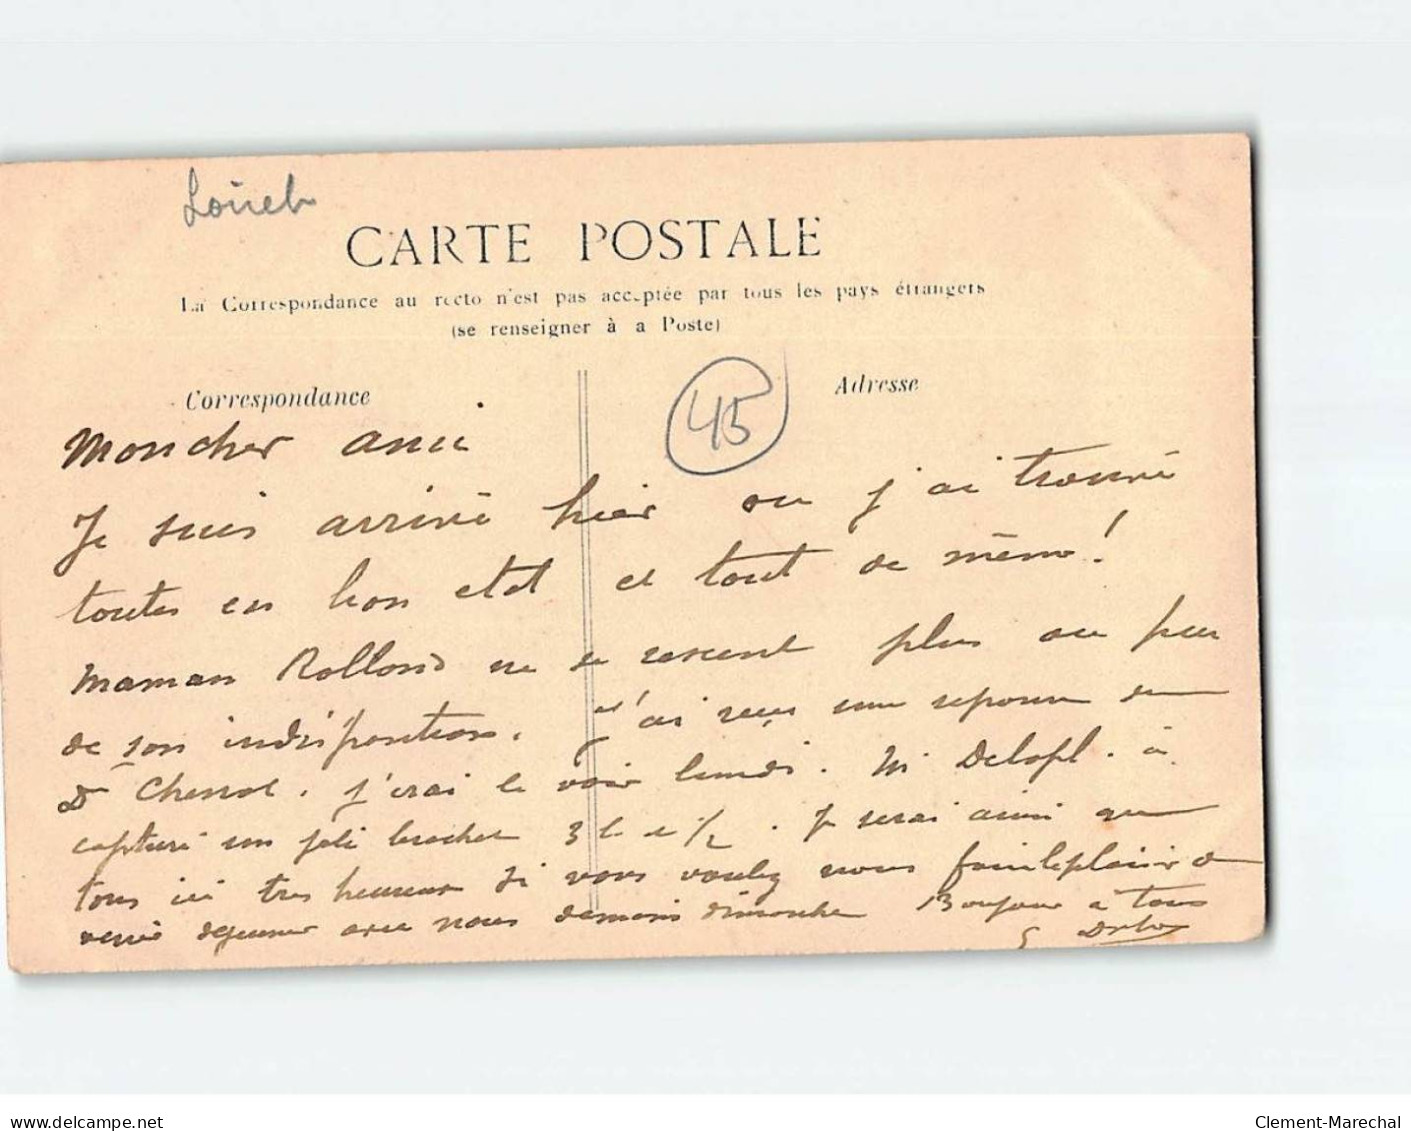 CARTE POSTALE
La Correspondance au recto n'est pas acceptée par tous les pays étrangers
(se renseigner à a Poste)
Correspondance
Adresse
45
Moncher ami
Je suis arrivé hier ou j'ai trouvé
toutes en bon etat et tout de même!
Maman Rolland ne se ressent plus ou peu
de son indisposition. J'ai reçu une reponse du
Dr J'irai le voir lundi. M Delapl. a
capturé un joli brochet 3 l e 1/2. Je serai ainsi que
tous ici tres heureux si vous voulez nous faire le plaisir de
venir dejeuner avec nous demain dimanche Bonjour à tous